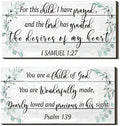 For this child I have prayed
and the Lord has granted
the desires of my heart
1 SAMUEL 1:27
You are a Child of God
You are Wonderfully made,
Dearly loved and precious in his sight.
Psalm 139